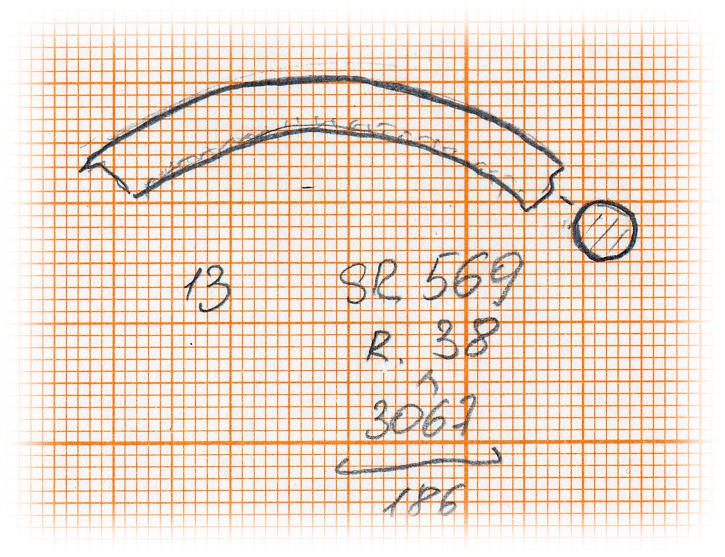 13
SR 569
R. 38
3061
186